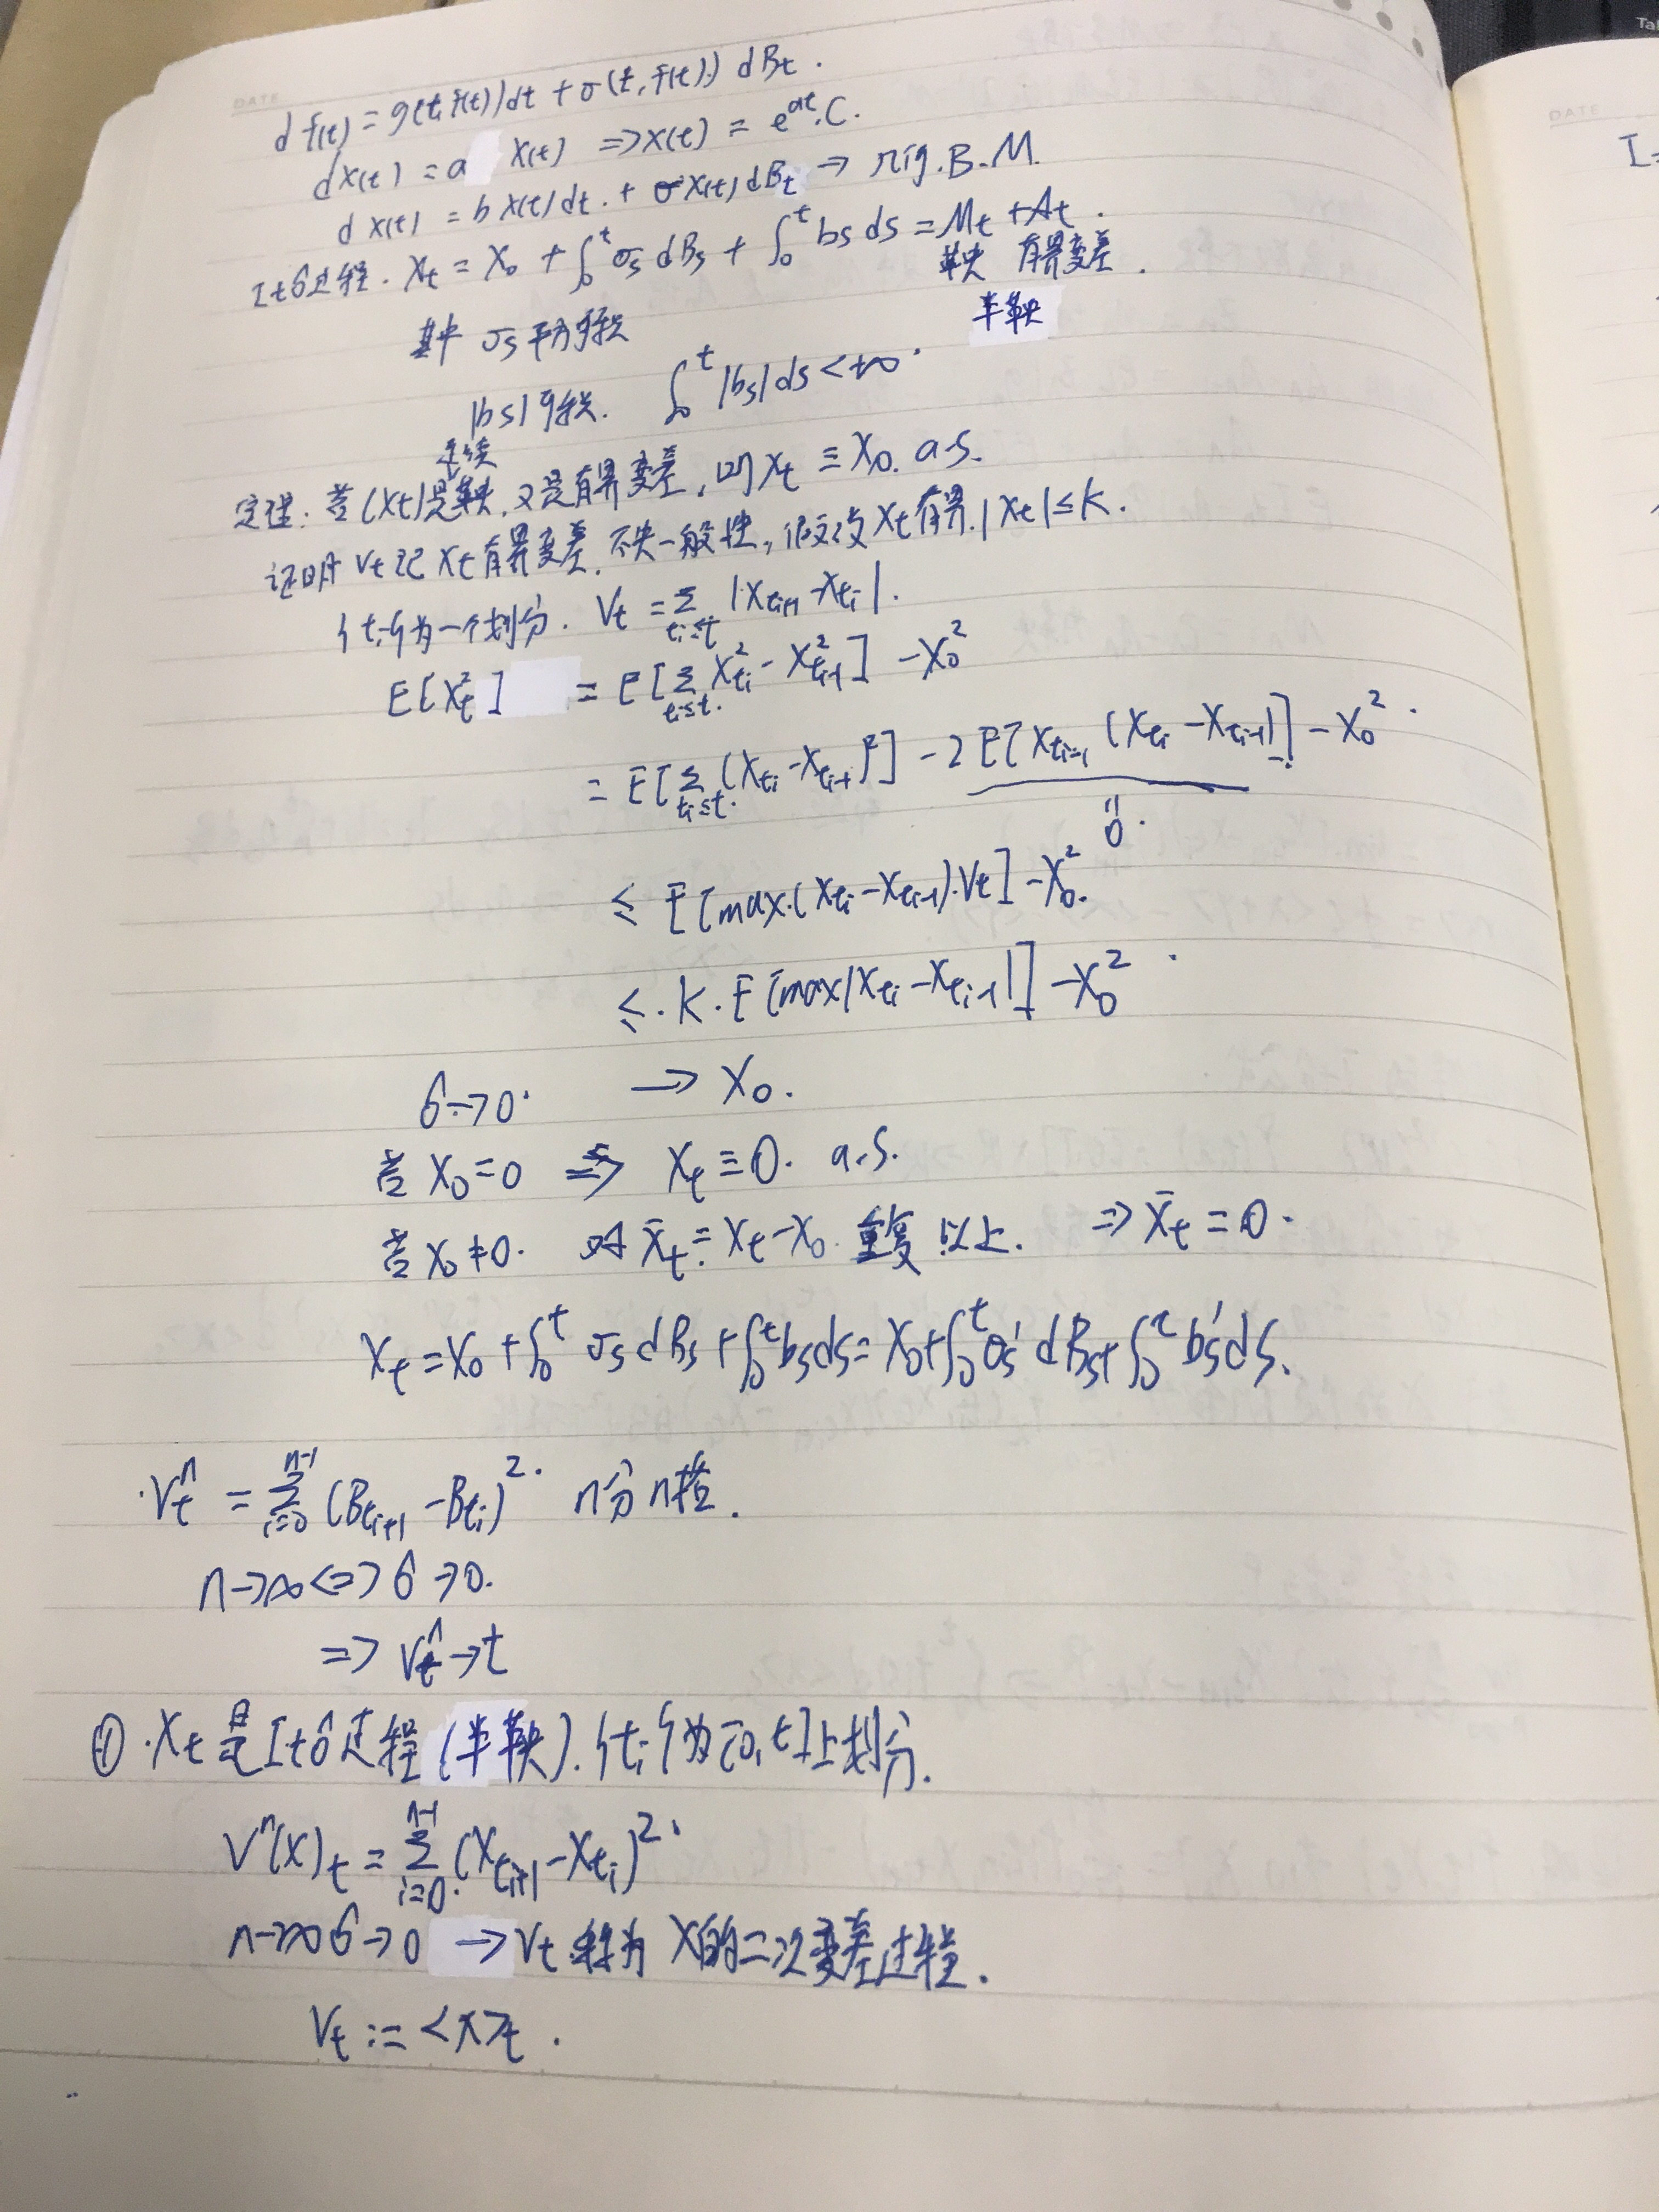 DATE
d f(t) = g(t, f(t))dt + σ(t, f(t)) dBt .
dX(t) = a X(t) ⇒ X(t) = e^{at}·C.
d X(t) = b X(t)dt. + σX(t) dBt → rig. B-M.
Itô过程. Xt = X0 + ∫_0^t σs dBs + ∫_0^t bs ds = Mt + At .
鞅 有界变差 .
半鞅
其中 σs 平方可积
|bs| 可积. ∫_0^t |bs| ds < +∞ .
连续
定理: 若(Xt)是鞅, 又是有界变差, 则 Xt ≡ X0. a.s.
证明 Vt 记 Xt 有界变差. 不失一般性, 假设 Xt 有界. |Xt| ≤ K .
{ti}为一个划分. Vt = Σ_{ti≤t} |X_{ti+1} - X_{ti}| .
E[Xt^2] = E[Σ_{ti≤t.} X_{ti}^2 - X_{ti-1}^2] - X0^2
= E[Σ_{ti≤t.} (X_{ti} - X_{ti-1})^2] - 2 E[X_{ti-1} (X_{ti} - X_{ti-1})] - X0^2 .
0 .
≤ E[max.(X_{ti} - X_{ti-1})·Vt] - X0^2.
≤ . K · E[max|X_{ti} - X_{ti-1}|] - X0^2 .
δ→0. → X0 .
若 X0 = 0 ⇒ Xt ≡ 0. a.s.
若 X0 ≠ 0. 对 X̄t := Xt - X0 重复以上. ⇒ X̄t = 0 .
Xt = X0 + ∫_0^t σs dBs + ∫_0^t bs ds = X0 + ∫_0^t σs' dBs + ∫_0^t bs' ds.
· Vt^n = Σ_{i=0}^{n-1} (B_{ti+1} - B_{ti})^2 . n分n段 .
n→∞ <=> δ→0.
⇒ Vt^n → t
① · Xt 是 Itô过程 (半鞅). {ti}为[0, t]上划分.
V^n(X)t = Σ_{i=0.}^{n-1} (X_{ti+1} - X_{ti})^2 .
n→∞ δ→0 → Vt 称为 X的二次变差过程.
Vt := <X>t .
DATE
I=
Tab